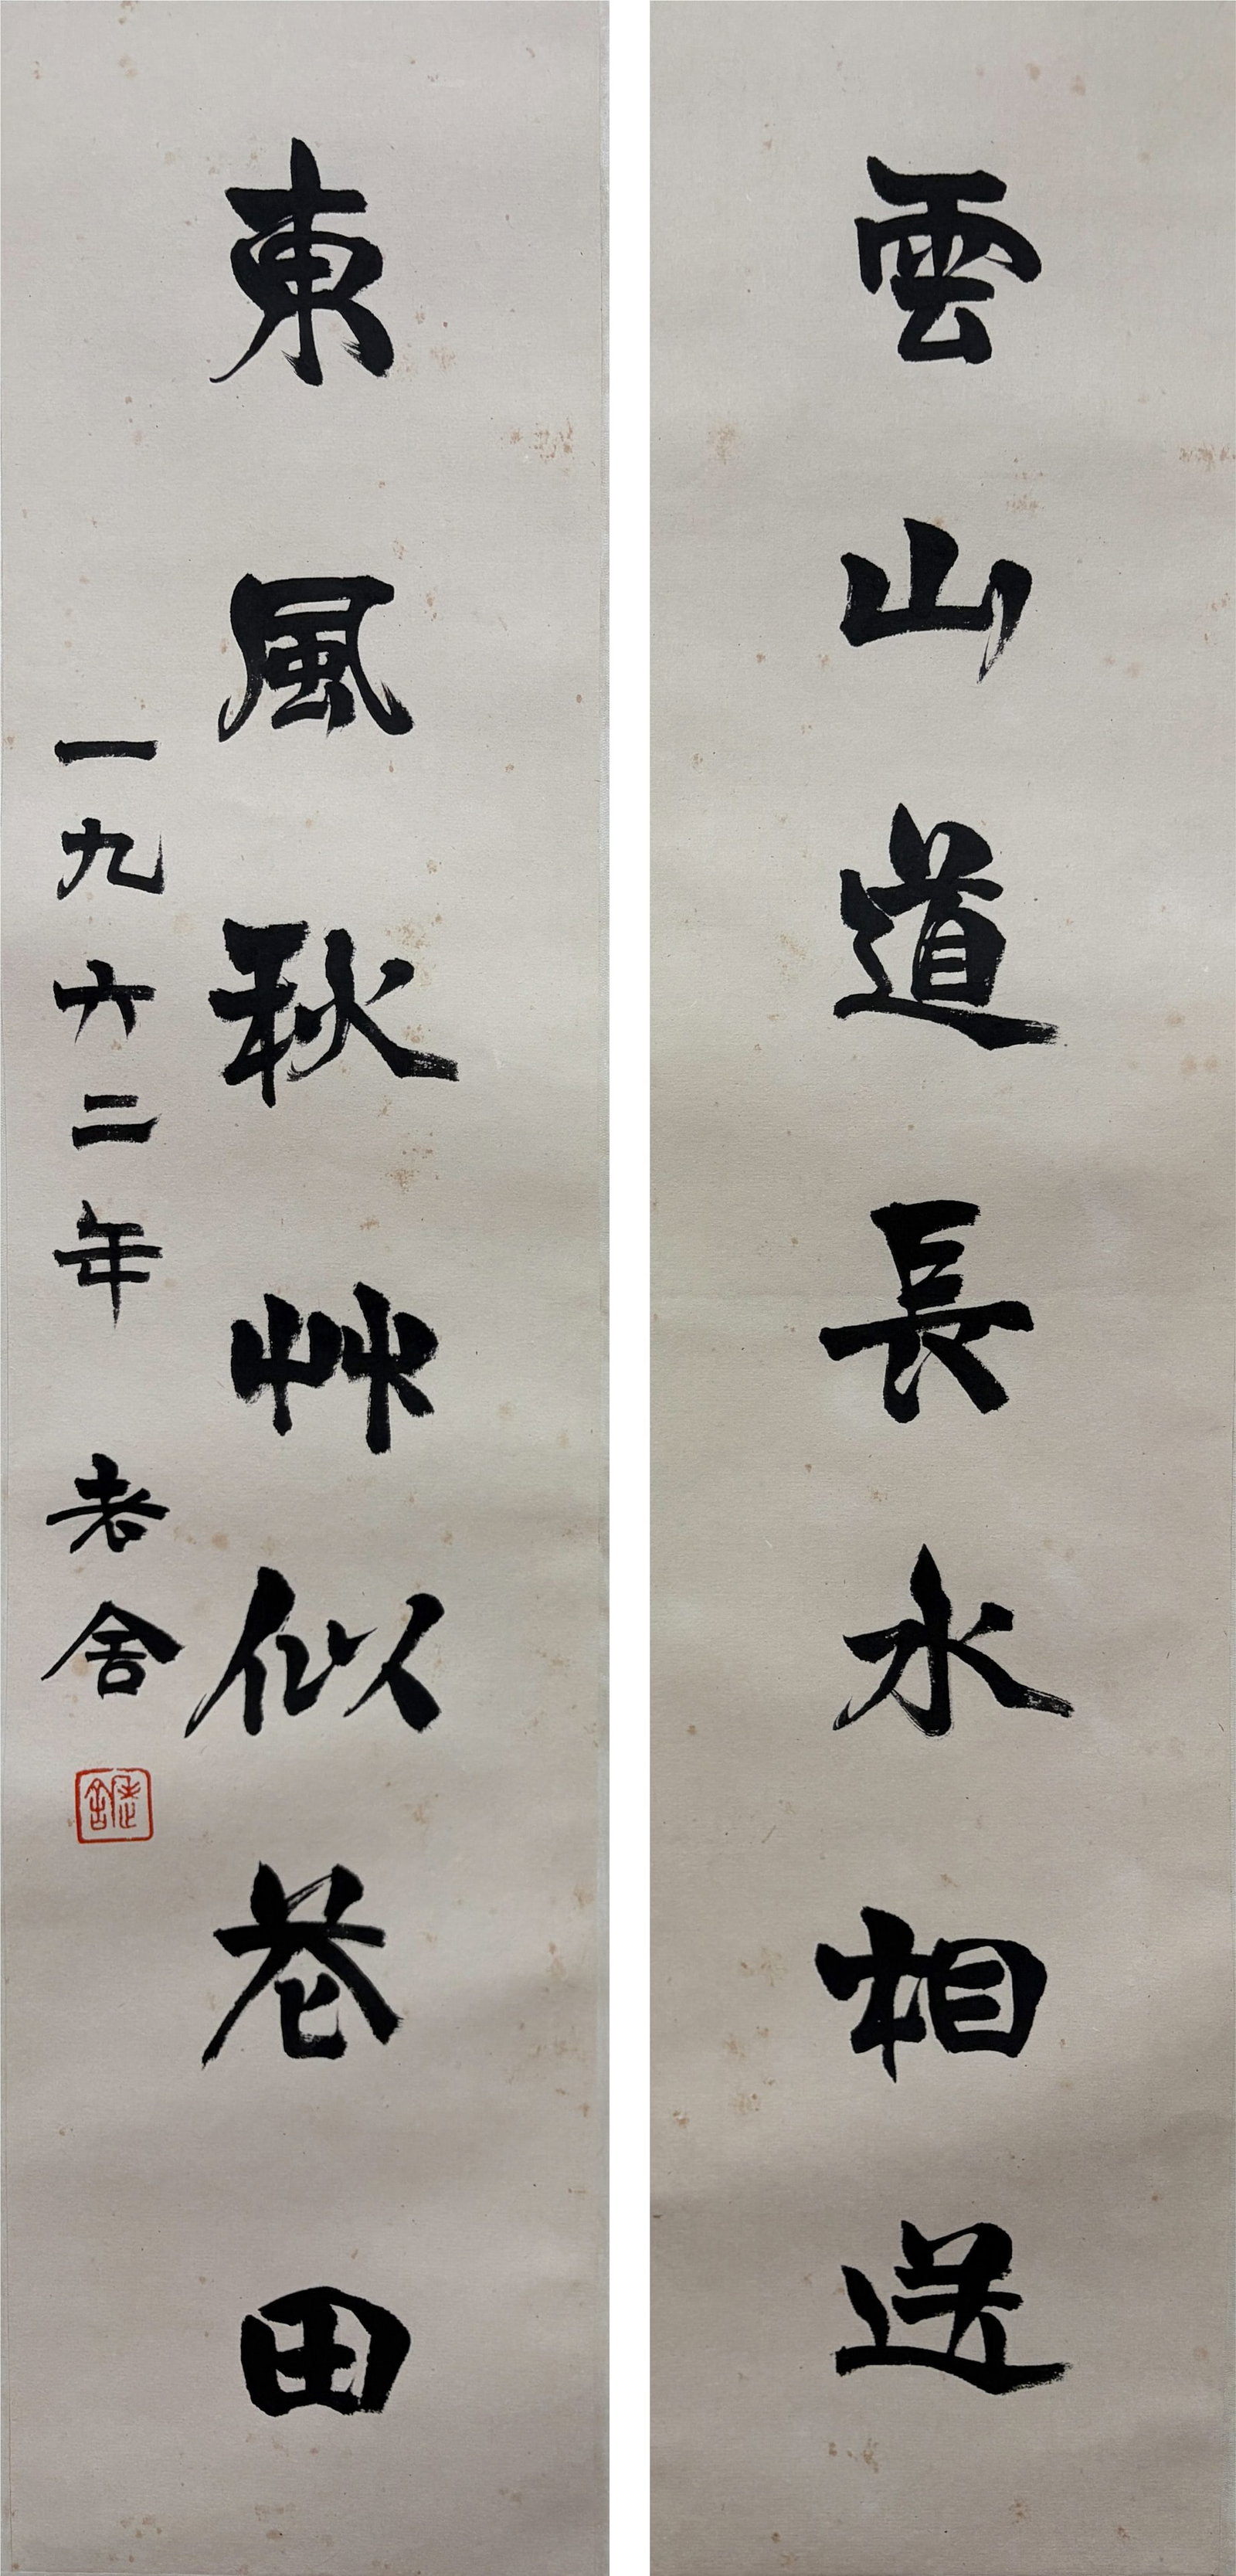 雲山道長水相送
東風秋艸似巷田
一九六二年 老舍
老舍